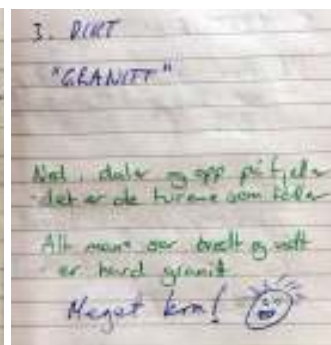 3. DIKT
"GRANITT"
Ned i daler og opp på fjeller
det er de turene som teller
Alt man ser bredt og vidt
er hard granit
Meget bra!